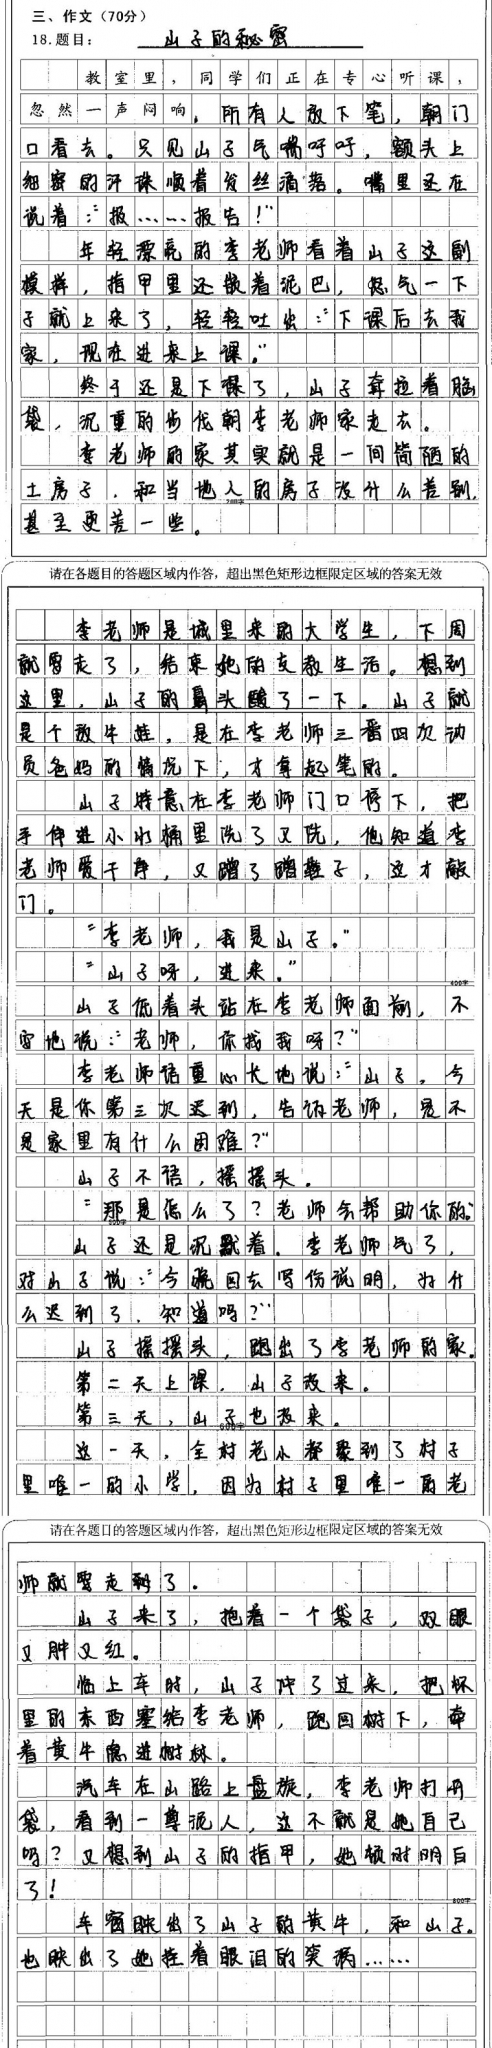 三、作文（70分）
18.题目：山子的秘密
教室里，同学们正在专心听课，
忽然一声闷响，所有人放下笔，朝门
口看去。只见山子气喘吁吁，额头上
细密的汗珠顺着发丝滴落。嘴里还在
说着："报……报告！"
年轻漂亮的李老师看着山子这副
模样，指甲里还嵌着泥巴，怒气一下
子就上来了，轻轻吐出："下课后去我
家，现在进来上课。"
终于还是下课了，山子耷拉着脑
袋，沉重的步伐朝李老师家走去。
李老师的家其实就是一间简陋的
土房子，和当地人的房子没什么差别，
甚至更差一些。
200字
请在各题目的答题区域内作答，超出黑色矩形边框限定区域的答案无效
李老师是城里来的大学生，下周
就要走了，结束她的支教生活。想到
这里，山子的鼻头酸了一下。山子就
是个放牛娃，是在李老师三番四次动
员爸妈的情况下，才拿起笔的。
山子特意在李老师门口停下，把
手伸进小水桶里洗了又洗，他知道李
老师爱干净，又蹭了蹭鞋子，这才敲
门。
"李老师，我是山子。"
"山子呀，进来。"
400字
山子低着头站在李老师面前，不
安地说："老师，你找我呀？"
李老师语重心长地说："山子，今
天是你第三次迟到，告诉老师，是不
是家里有什么困难？"
山子不语，摇摇头。
"那是怎么了？老师会帮助你的。"
500字
山子还是沉默着。李老师气了，
对山子说："今晚回去写份说明，为什
么迟到了，知道吗？"
山子摇摇头，跑出了李老师的家。
第二天上课，山子没来。
第三天，山子也没来。
600字
这一天，全村老小都聚到了村子
里唯一的小学，因为村子里唯一的老
请在各题目的答题区域内作答，超出黑色矩形边框限定区域的答案无效
师就要走了。
山子来了，抱着一个袋子，双眼
又肿又红。
临上车时，山子冲了过来，把怀
里的东西塞给李老师，跑回树下，牵
着黄牛隐进树林。
汽车在山路上盘旋，李老师打开
袋，看到一尊泥人，这不就是她自己
吗？又想到山子的指甲，她顿时明白
了！
800字
车窗映出了山子的黄牛，和山子。
也映出了她挂着眼泪的笑涡……